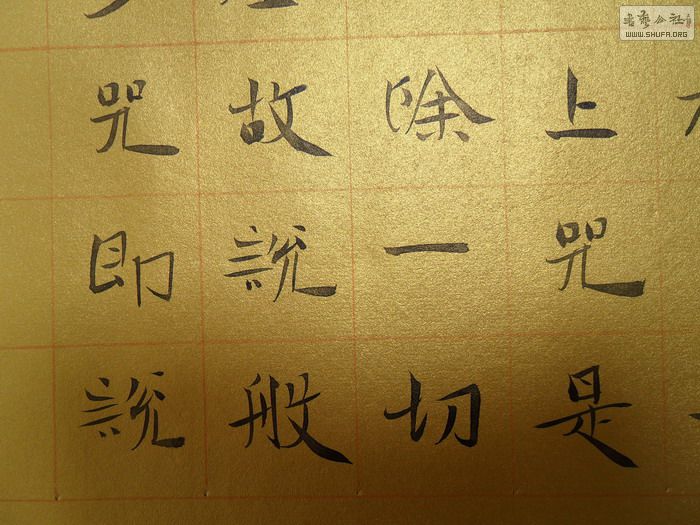 上咒是
除一切
故說般
咒即說
書藝公社
WWW.SHUFA.ORG